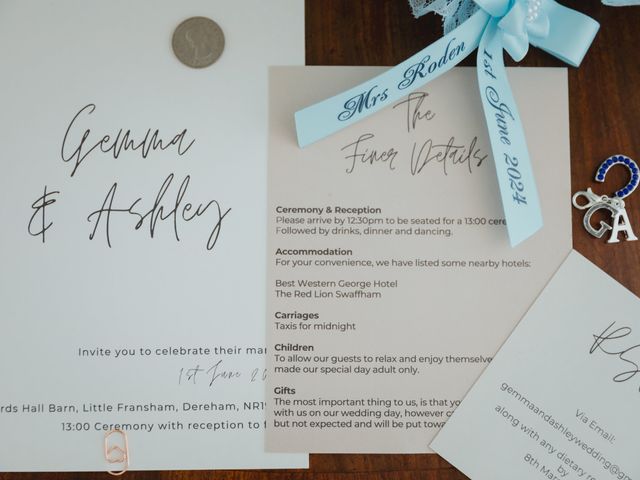 Gemma
& Ashley
Invite you to celebrate their
1st June
Hall Barn, Little Fransham, Dereham,
13:00 Ceremony with reception to
Mrs Roden
1st June 2024
The
Finer Details
Ceremony & Reception
Please arrive by 12:30pm to be seated for a 13:00
Followed by drinks, dinner and dancing.
Accommodation
For your convenience, we have listed some nearby hotels:
Best Western George Hotel
The Red Lion Swaffham
Carriages
Taxis for midnight
Children
To allow our guests to relax and enjoy
made our special day adult only.
Gifts
The most important thing to us, is that
with us on our wedding day, however
but not expected and will be put
G A
Via Email:
gemmaandashleywedding@
along with any dietary
by
8th